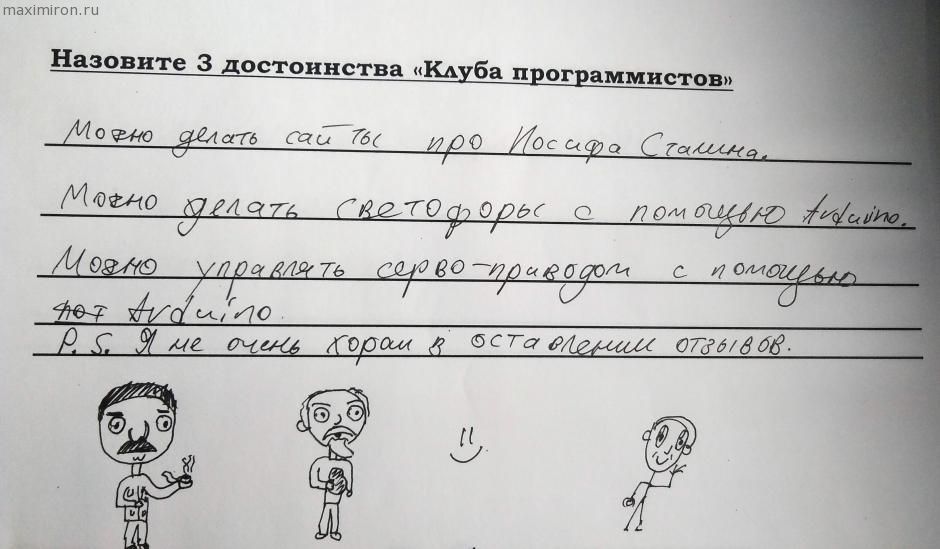 maximiron.ru
Назовите 3 достоинства «Клуба программистов»
Можно делать сайты про Иосифа Сталина.
Можно делать светофоры с помощью Arduino.
Можно управлять серво-приводом с помощью
Arduino.
P.S. Я не очень хорош в оставлении отзывов.